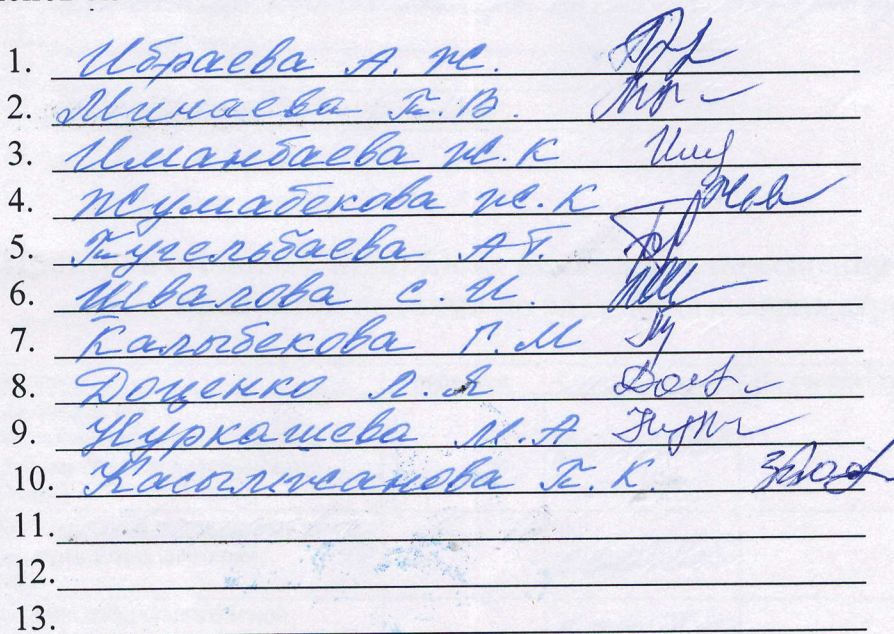 1. Ибраева А. Ж.
2. Минаева Т. В.
3. Иманбаева Ж. К
4. Жумабекова Ж. К
5. Тугельбаева А. Т.
6. Швалова С. И.
7. Калыбекова Г. М
8. Доценко Л. Я
9. Нуркашева М. А
10. Касылжанова Т. К.
11.
12.
13.